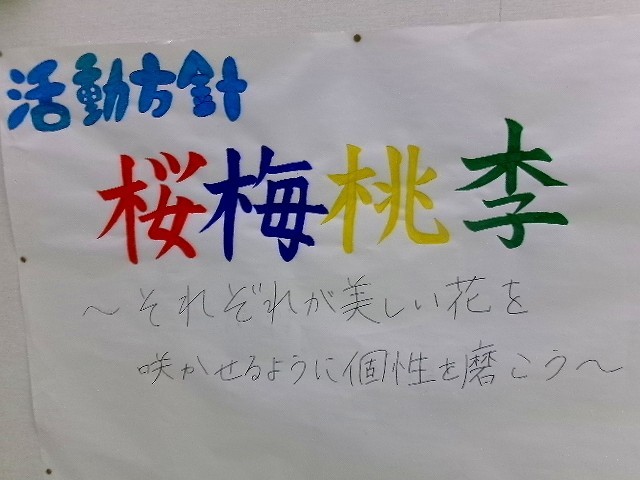 活動方針
桜梅桃李
～それぞれが美しい花を
咲かせるように個性を磨こう～